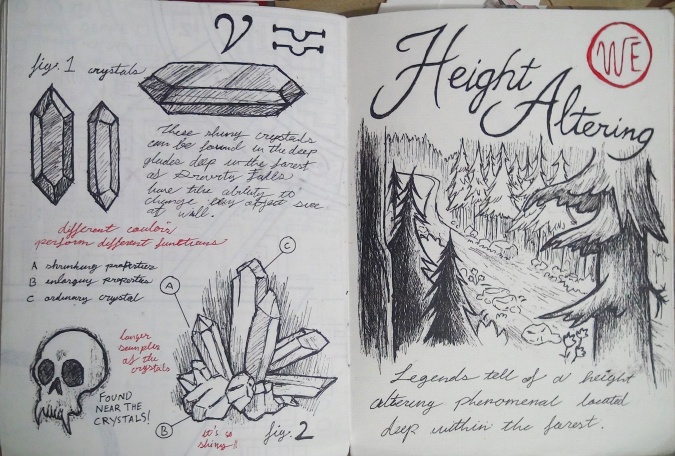 fig. 1 crystals
These shiny crystals
can be found in the deep
glades deep in the forest
of Gravity Falls
have the ability to
change any object size
at will.
different coulor
perform different functions
A shrinking properties
B enlarging properties
C ordinary crystal
C
A
larger
samples
of the
crystals
FOUND
NEAR THE
CRYSTALS!
B
it's so
shiny!!
fig. 2
WE
Height
Altering
Legends tell of a height
altering phenomenal located
deep within the forest.